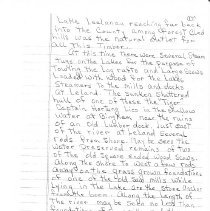 Lake Leelanau reaching far back
into the County among Forest Clad
Hills was the natural outlet for
all This Timber.
At this time There were Several Steam
Tugs on the Lakes For the Purpose of
Towing the Log rafts and Large Scows
Loaded with Wood for the Lake
Steamers To the Mills and docks
at Leland. The Sunken Shattered
hull of one of these The Tiger
Captain Harting Lies in the Shallow
Water at Bingham near the ruins
of an Old Lumber dock. Just East
of the river at Leland Several
rods from Shore may be Seen the
Water Preserved remains of Two
of the old Square Ended Wood Scows
Along the Shore To West a few rods
away on the grass grown foundations
of one of the old Saw Mills while
lying in the Lake are the Stone
Along the Length of
the river may be Seen no less than